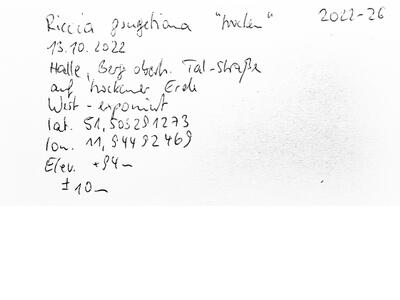 Riccia gougetiana "trocken" 2022-26
13.10.2022
Halle, Berg oberh. Tal-Straße
auf trockener Erde
West-exponiert
lat. 51,505291273
lon. 11,94492469
Elev. +94m
±10m